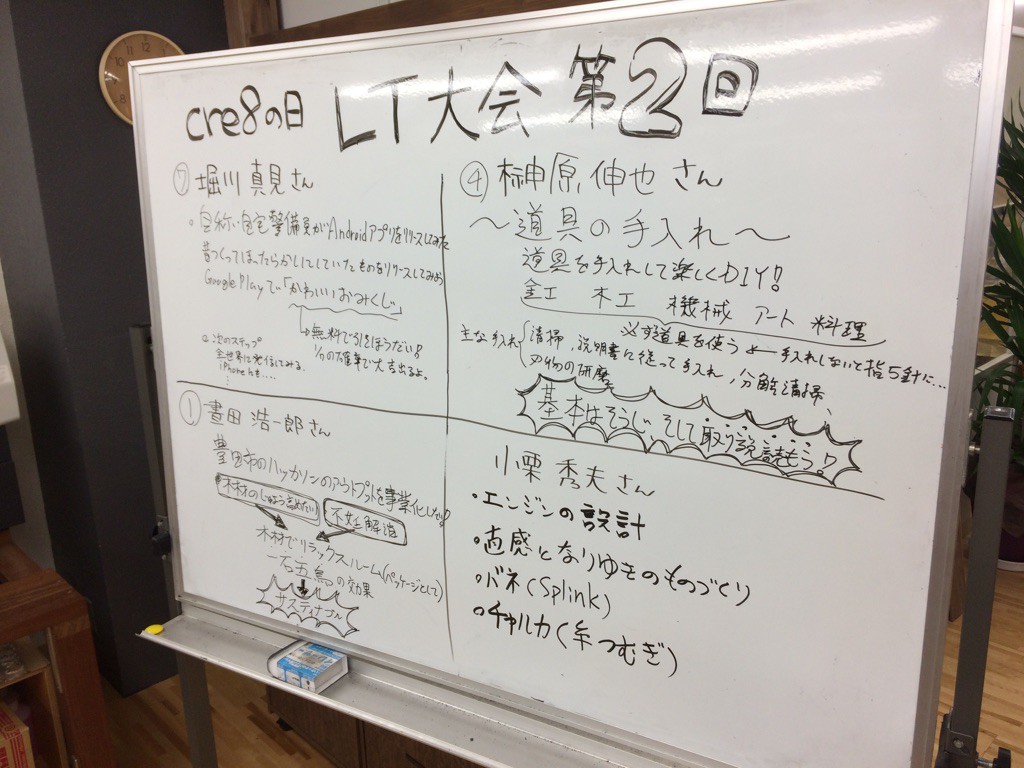 cre8の日 LT大会 第2回
⑦ 堀川 真見さん
・自称・自宅警備員がAndroidアプリをリリースしてみた
昔つくってほったらかしにしていたものをリリースしてみよう
Google Playで「かわいいおみくじ」
→無料で引きほうだい!
1/7の確率で大吉出るよ。
次のステップ
全世界に発信してみる
iPhoneも....
④ 榊原 伸也さん
〜道具の手入れ〜
道具を手入れして楽しくDIY!
金工 木工 機械 アート 料理
※す道具を使う ← 手入れしないと指5針に...
主な手入れ
清掃、説明書に従って手入れ、分解清掃、
刃物の研磨
基本はそうじ そして取り説読もう!
① 畫田 浩一郎さん
豊田市のハッカソンのアウトプットを事業化したい!
木材のじゅよう高めたい
不妊解消
木材でリラックスルーム(パッケージとして)
一石五鳥の効果
サスティナブル
小栗 秀夫さん
・エンジンの設計
・直感となりゆきのものづくり
・バネ(Splink)
・チャルカ(糸つむぎ)